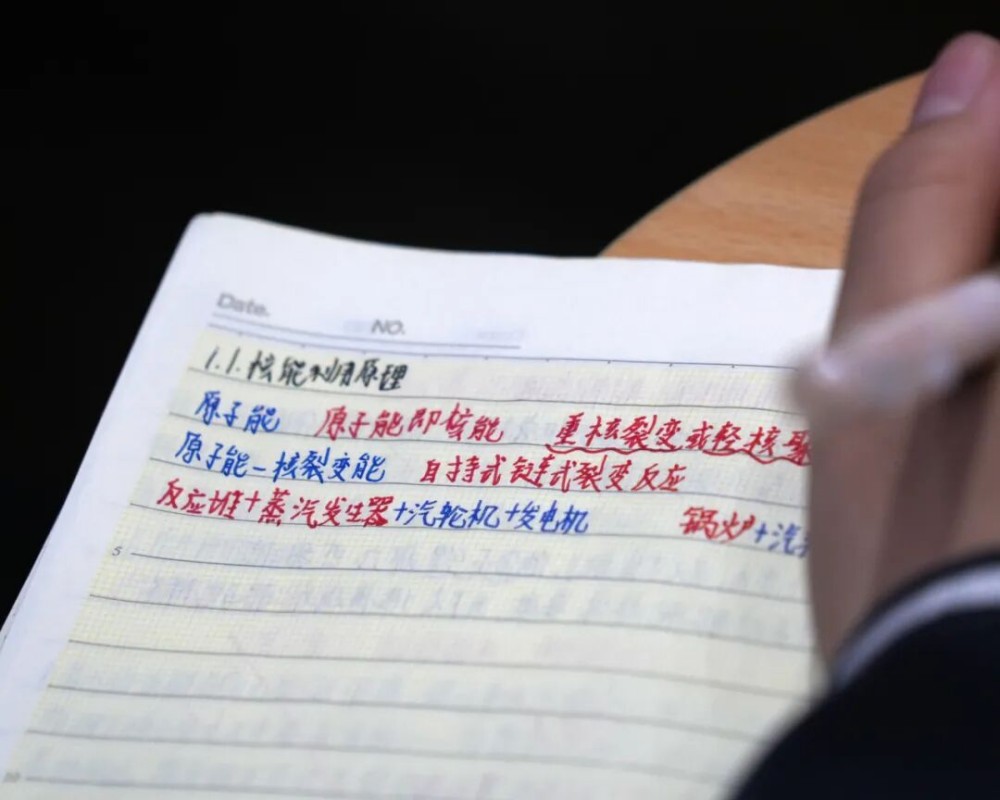 Date.
NO.
1.1.核能利用原理
原子能 原子能即核能 重核裂变或轻核聚
原子能-核裂变能 自持式链式裂变反应
反应堆+蒸汽发生器+汽轮机+发电机 锅炉+汽
5
10